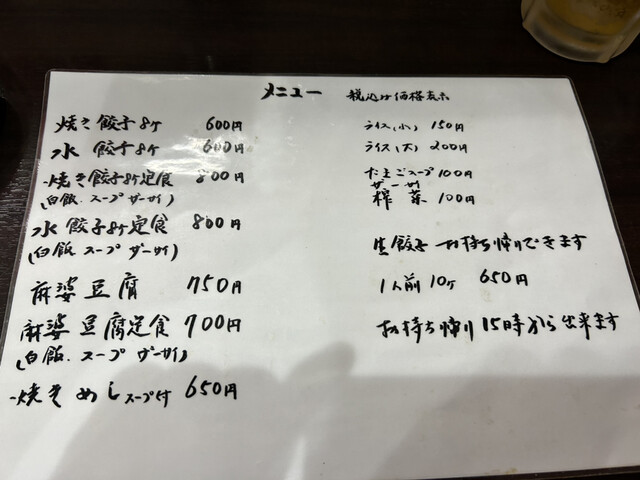 メニュー 税込み価格表示
焼き餃子8ケ 600円
水餃子8ケ 600円
焼き餃子8ケ定食 800円
(白飯.スープザーサイ)
水餃子8ケ定食 800円
(白飯 スープ ザーサイ)
麻婆豆腐 750円
麻婆豆腐定食 900円
(白飯.スープ ザーサイ)
焼きめしスープ付 650円
ライス(小) 150円
ライス(大) 200円
たまごスープ 100円
ザーサイ
榨菜 100円
生餃子 お持ち帰りできます
1人前 10ケ 650円
お持ち帰り 15時から出来ます